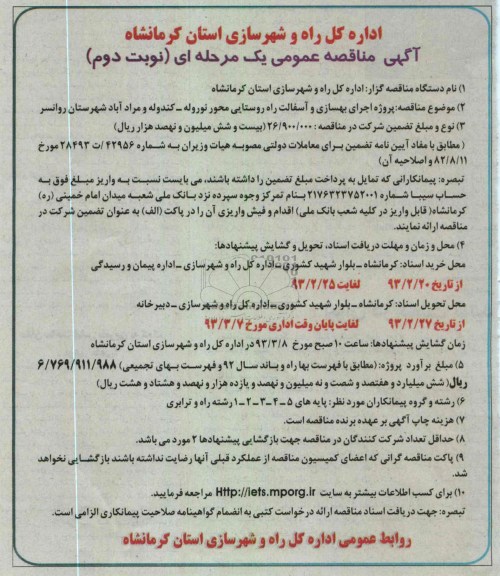 اداره کل راه و شهرسازی استان کرمانشاه
آگهی مناقصه عمومی یک مرحله ای (نوبت دوم)
۱) نام دستگاه مناقصه گزار: اداره کل راه و شهرسازی استان کرمانشاه
۲) موضوع مناقصه: پروژه اجرای بهسازی و آسفالت راه روستایی محور نوروله ـ کندوله و مراد آباد شهرستان روانسر
۳) نوع و مبلغ تضمین شرکت در مناقصه: ۲۶/۹۰۰/۰۰۰ (بیست و شش میلیون و نهصد هزار ریال)
( مطابق با مفاد آیین نامه تضمین برای معاملات دولتی مصوبه هیات وزیران به شماره ۴۲۹۵۶ /ت ۲۸۴۹۳ مورخ
۸۲/۸/۱۱ و اصلاحیه آن)
تبصره: پیمانکارانی که تمایل به پرداخت مبلغ تضمین را داشته باشند، می بایست نسبت به واریز مبلغ فوق به
حساب سیبا شماره ۲۱۷۶۳۲۳۷۵۲۰۰۱ بنام تمرکز وجوه سپرده نزد بانک ملی شعبه میدان امام خمینی (ره)
کرمانشاه( قابل واریز در کلیه شعب بانک ملی) اقدام و فیش واریزی آن را در پاکت (الف) به عنوان تضمین شرکت در
مناقصه ارائه نمایند.
۴) محل و زمان و مهلت دریافت اسناد، تحویل و گشایش پیشنهادها:
محل خرید اسناد: کرمانشاه ـ بلوار شهید کشوری ـ اداره کل راه و شهرسازی ـ اداره پیمان و رسیدگی
از تاریخ ۹۳/۲/۲۰ لغایت ۹۳/۲/۲۵
محل تحویل اسناد: کرمانشاه ـ بلوار شهید کشوری ـ اداره کل راه و شهرسازی ـ دبیرخانه
از تاریخ ۹۳/۲/۲۷ لغایت پایان وقت اداری مورخ ۹۳/۳/۷
زمان گشایش پیشنهادها: ساعت ۱۰ صبح مورخ ۹۳/۳/۸ در اداره کل راه و شهرسازی استان کرمانشاه
۵) مبلغ برآورد پروژه: (مطابق با فهرست بها راه و باند سال ۹۲ و فهرست بهای تجمیعی) ۶/۷۶۹/۹۱۱/۹۸۸
ریال( شش میلیارد و هفتصد و شصت و نه میلیون و نهصد و یازده هزار و نهصد و هشتاد و هشت ریال)
۶) رشته و گروه پیمانکاران مورد نظر: پایه های ۵ ـ ۴ ـ ۳ ـ ۲ ـ ۱ رشته راه و ترابری
۷) هزینه چاپ آگهی بر عهده برنده مناقصه است.
۸) حداقل تعداد شرکت کنندگان در مناقصه جهت بازگشایی پیشنهادها ۲ مورد می باشد.
۹) پاکت مناقصه گرانی که اعضای کمیسیون مناقصه از عملکرد قبلی آنها رضایت نداشته باشند بازگشایی نخواهد
شد.
۱۰) برای کسب اطلاعات بیشتر به سایت Http://iets.mporg.ir مراجعه فرمایید.
تبصره: جهت دریافت اسناد مناقصه ارائه درخواست کتبی به انضمام گواهینامه صلاحیت پیمانکاری الزامی است.
روابط عمومی اداره کل راه و شهرسازی استان کرمانشاه